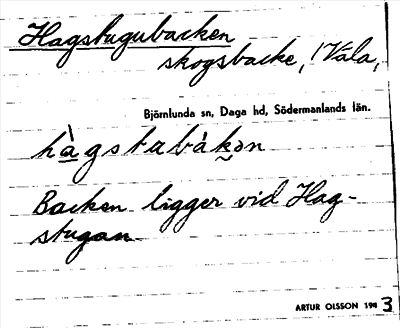 Hagstugubacken
skogsbacke, ! Vala,
Björnlunda sn, Daga hd, Södermanlands län.
hàgstabàkən
Backen ligger vid Hag-
stugan
ARTUR OLSSON 1943